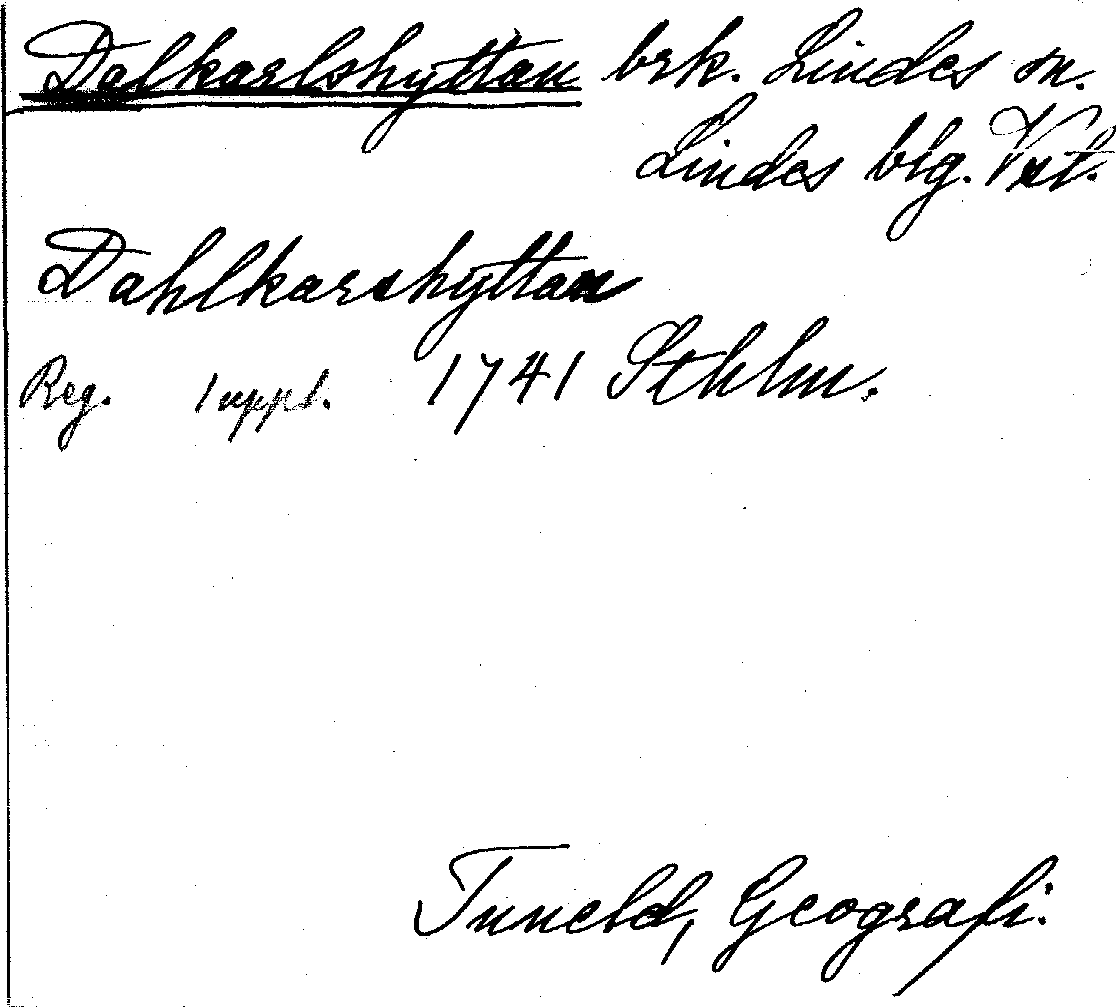 Dalkarlshyttan brk. Lindes sn.
Lindes blg. Vstl.
Dahlkarshyttan
Reg. 1 uppl. 1741 Sthlm.
Tuneld, Geografi.